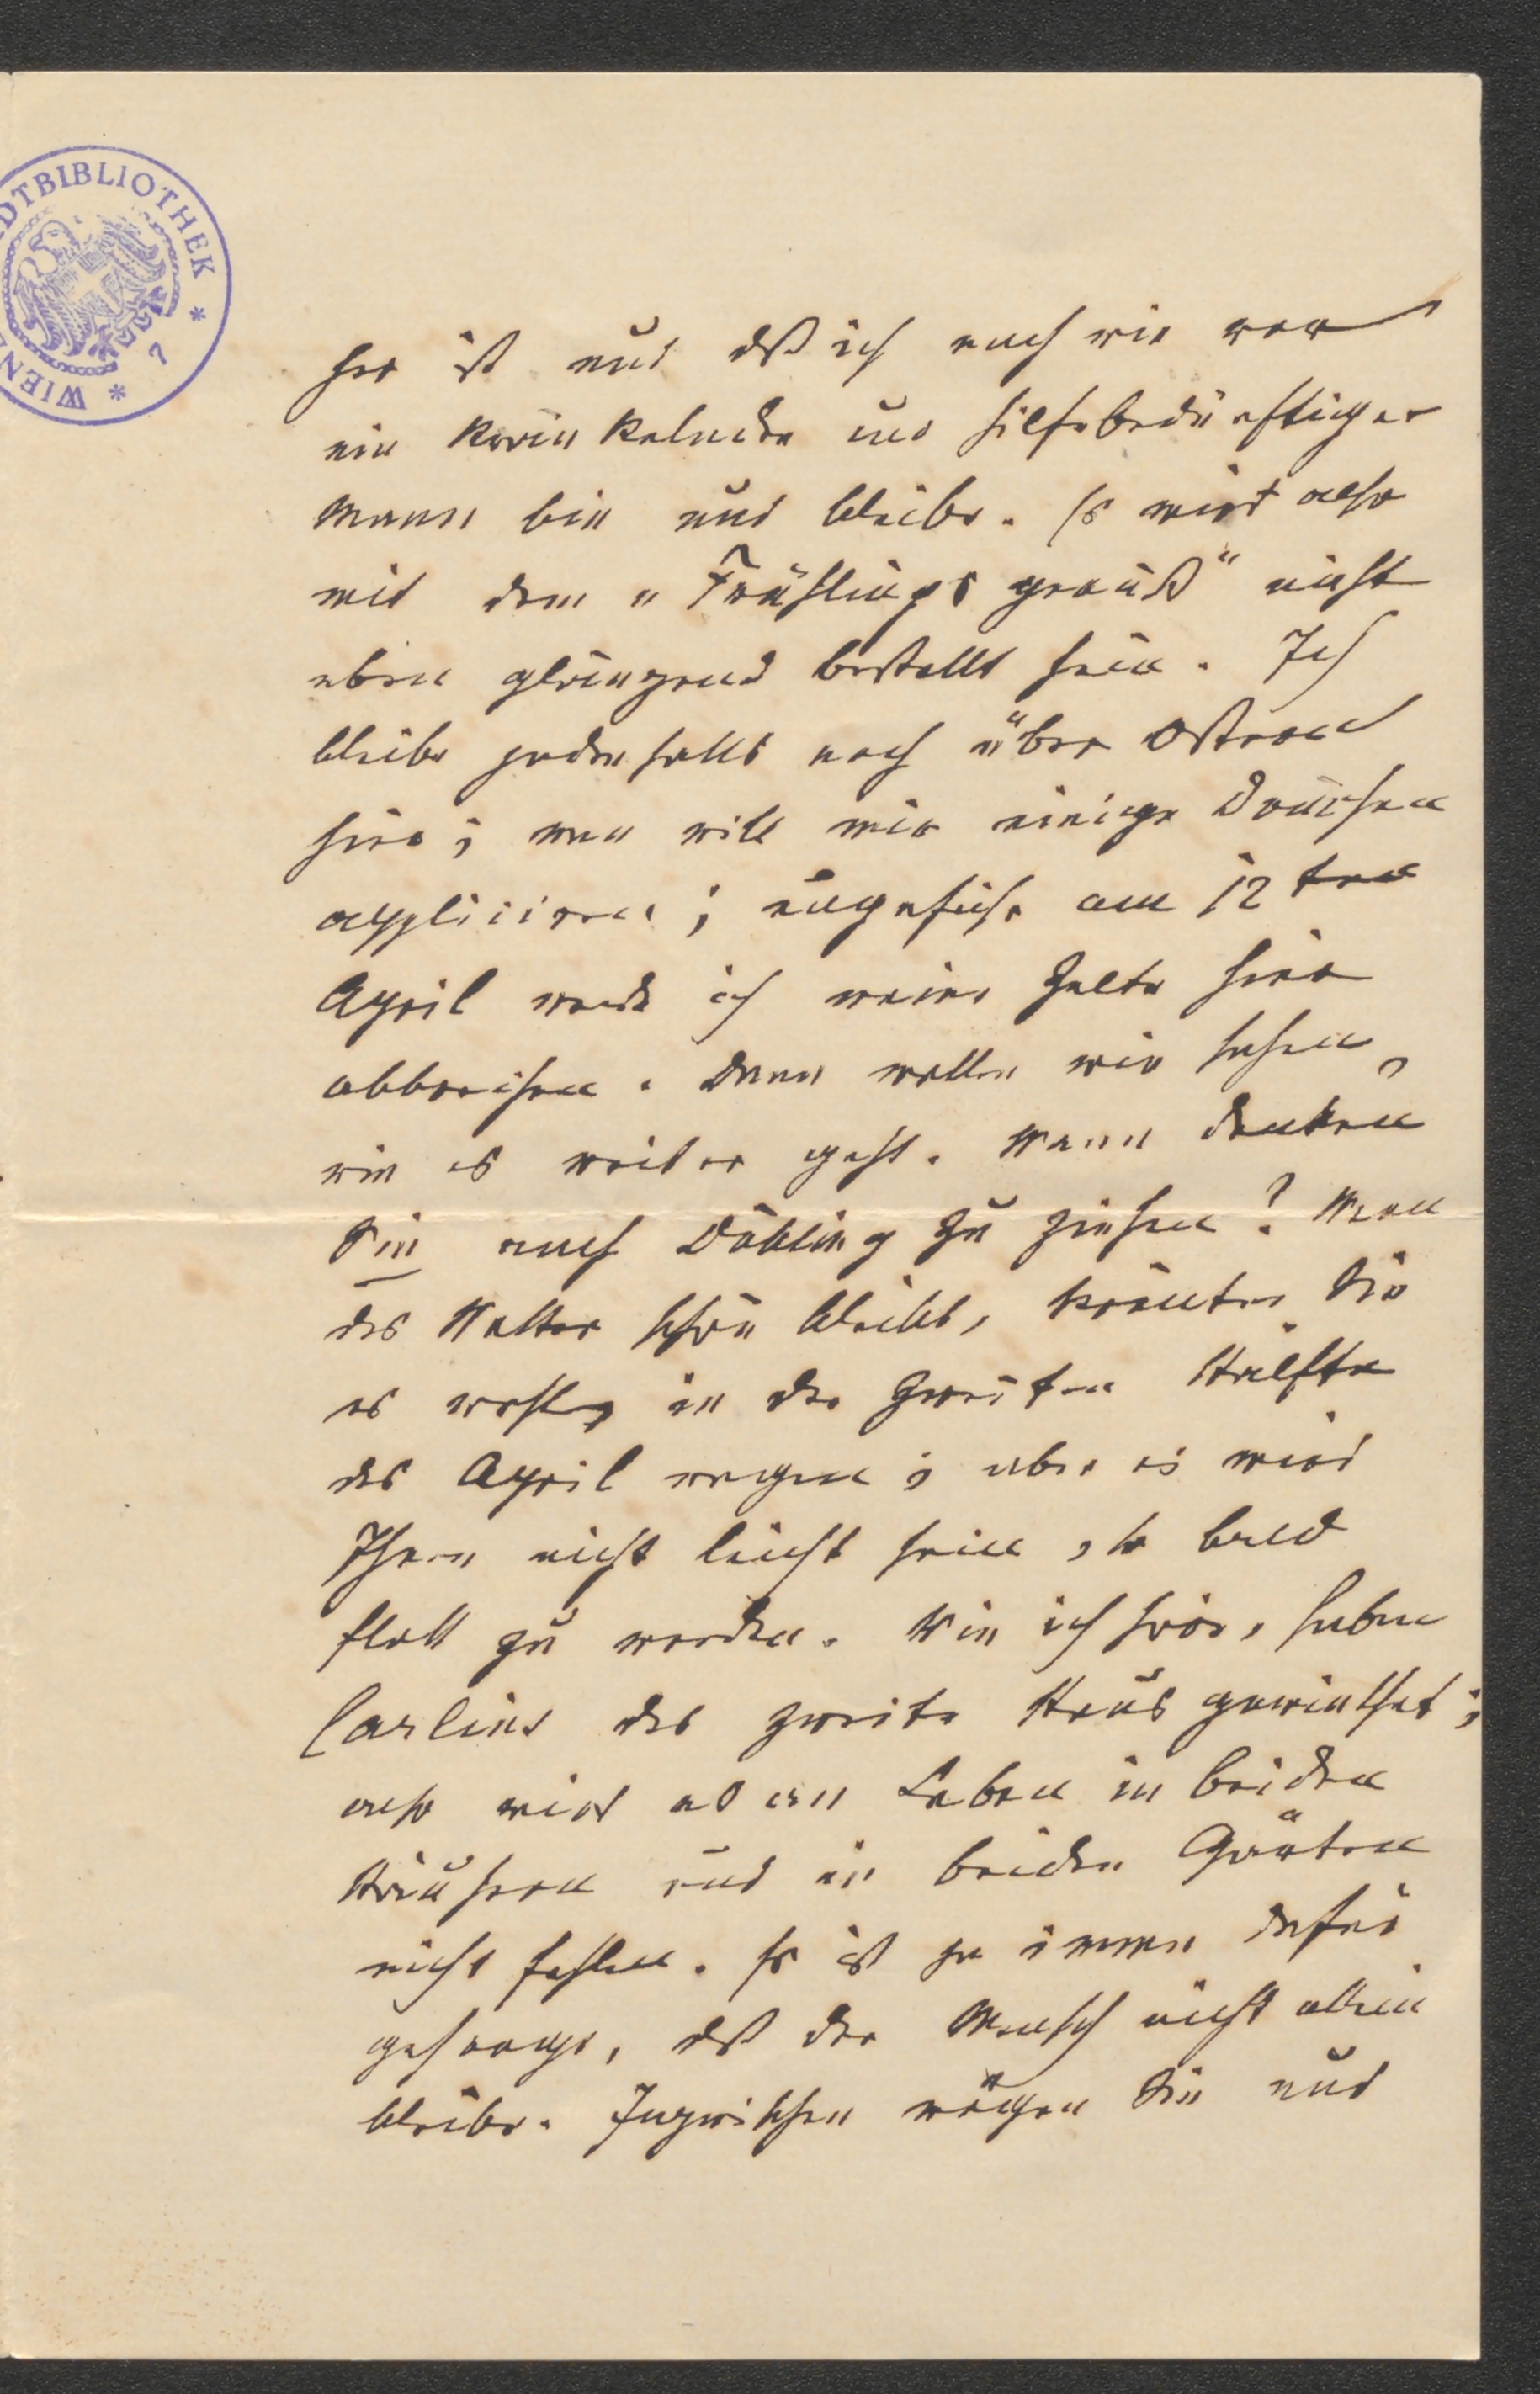 DTBIBLIOTHEK * 7 * WIEN
her ist und dß ich nach wie vor
ein kränkelnder und hilfsbedürftiger
Mann bin und bleibe. Es wird also
mit dem „Frühlingsgruß“ nicht
eben glänzend bestellt sein. Ich
bleibe jedenfalls noch über Ostern
hier; man will mir einige Douchen
appliciren; ungefähr am 12ten
April werde ich meine Zelte hier
abbrechen. Dann wollen wir sehen,
wie es weiter geht. Wann denken
Sie nach Döbling zu ziehen? Wenn
das Wetter schön bleibt, könnten Sie
es wohl, in der zweiten Hälfte
des April wagen; aber es wird
Ihnen nicht leicht sein, so bald
flott zu werden. Wie ich höre, haben
Carlins das zweite Haus gemiethet;
also wird es an Leben in beiden
Häusern und in beiden Gärten
nicht fehlen. Es ist ja immer dafür
gesorgt, dß der Mensch nicht allein
bleibe. Inzwischen mögen Sie und